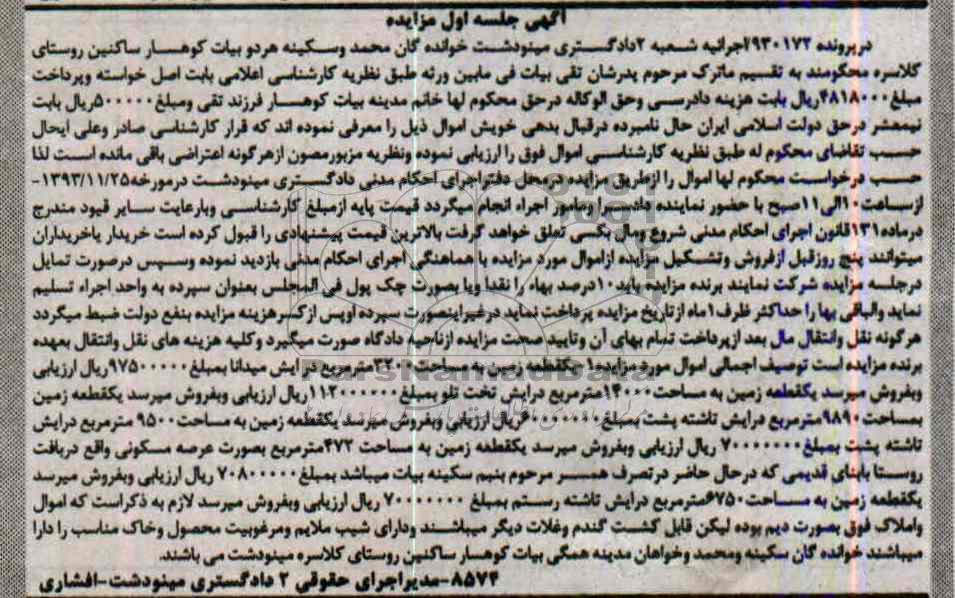 آگهی جلسه اول مزایده
درپرونده ۲۹۳۰۱۷۲اجرائیه شعبه ۲دادگستری مینودشت خوانده گان محمد وسکینه هردو بیات کوهسار ساکنین روستای
کلاسره محکومند به تقسیم ماترک مرحوم پدرشان تقی بیات فی مابین ورثه طبق نظریه کارشناسی اعلامی بابت اصل خواسته وپرداخت
مبلغ۴۸۱۸۰۰۰ریال بابت هزینه دادرسی وحق الوکاله درحق محکوم لها خانم مدینه بیات کوهسار فرزند تقی ومبلغ۵۰۰۰۰۰ریال بابت
نیمعشر درحق دولت اسلامی ایران حال نامبرده درقبال بدهی خویش اموال ذیل را معرفی نموده اند که قرار کارشناسی صادر وعلی ایحال
حسب تقاضای محکوم له طبق نظریه کارشناسی اموال فوق را ارزیابی نموده ونظریه مزبورمصون ازهرگونه اعتراضی باقی مانده است لذا
حسب درخواست محکوم لها اموال را ازطریق مزایده درمحل دفتراجرای احکام مدنی دادگستری مینودشت درمورخه۱۳۹۳/۱۱/۲۵-
ازساعت۱۰الی۱۱صبح با حضور نماینده دادسرا ومامور اجراء انجام میگردد قیمت پایه ازمبلغ کارشناسی وبارعایت سایر قیود مندرج
درماده۱۳۱قانون اجرای احکام مدنی شروع ومال بکسی تعلق خواهد گرفت بالاترین قیمت پیشنهادی را قبول کرده است خریدار یاخریداران
میتوانند پنج روزقبل ازفروش وتشکیل مزایده ازاموال مورد مزایده با هماهنگی اجرای احکام مدنی بازدید نموده وسپس درصورت تمایل
درجلسه مزایده شرکت نمایند برنده مزایده باید۱۰درصد بهاء را نقدا ویا بصورت چک پول فی المجلس بعنوان سپرده به واحد اجراء تسلیم
نماید والباقی بها را حداکثر ظرف۱ماه ازتاریخ مزایده پرداخت نماید درغیراینصورت سپرده اوپس ازکسرهزینه مزایده بنفع دولت ضبط میگردد
هرگونه نقل وانتقال مال بعد ازپرداخت تمام بهای آن وتایید صحت مزایده ازناحیه دادگاه صورت میگیرد وکلیه هزینه های نقل وانتقال بعهده
برنده مزایده است توصیف اجمالی اموال مورد مزایده۱- یکقطعه زمین به مساحت۳۲۰۰مترمربع درایش میدانا بمبلغ۹۷۵۰۰۰۰۰ریال ارزیابی
وبفروش میرسد یکقطعه زمین به مساحت۱۴۰۰۰مترمربع درایش تخت تلو بمبلغ۱۱۲۰۰۰۰۰۰ریال ارزیابی وبفروش میرسد یکقطعه زمین
بمساحت۹۸۹۰مترمربع درایش تاشته پشت بمبلغ ریال ارزیابی وبفروش میرسد یکقطعه زمین به مساحت۹۵۰۰ مترمربع درایش
تاشته پشت بمبلغ۷۰۰۰۰۰۰۰ ریال ارزیابی وبفروش میرسد یکقطعه زمین به مساحت ۴۷۲مترمربع بصورت عرصه مسکونی واقع دربافت
روستا بابنای قدیمی که درحال حاضر درتصرف همسر مرحوم بنیم سکینه بیات میباشد بمبلغ۷۰۸۰۰۰۰۰ ریال ارزیابی وبفروش میرسد
یکقطعه زمین به مساحت۶۷۵۰مترمربع درایش تاشته رستم بمبلغ ۷۰۰۰۰۰۰۰ ریال ارزیابی وبفروش میرسد لازم به ذکراست که اموال
واملاک فوق بصورت دیم بوده لیکن قابل کشت گندم وغلات دیگر میباشند ودارای شیب ملایم ومرغوبیت محصول وخاک مناسب را دارا
میباشند خوانده گان سکینه ومحمد وخواهان مدینه همگی بیات کوهسار ساکنین روستای کلاسره مینودشت می باشند.
۸۵۷۴-مدیراجرای حقوقی ۲ دادگستری مینودشت-افشاری
ParsNamadData